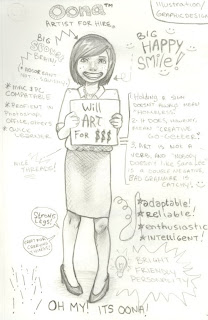 Oona™
ARTIST FOR HIRE.
ILLUSTRATION/
GRAPHIC DESIGN
BIG
BRAIN!
BIG
HAPPY
SMILE!
Will
ART
For $$$
* MAC & PC
COMPATABLE
* PROFICIENT IN
PHOTOSHOP,
* QUICK
LEARNER
NICE
THREADS!
STRONG
LEGS!
* Holding a SIGN
DOESN'T ALWAYS MEAN
"HOMELESS".
IT DOES, HOWEVER,
MEAN "CREATIVE
GO-GETTER."
* ART IS NOT A
VERB, AND "NOBODY
DOESN'T LIKE
IS A DOUBLE NEGATIVE.
BAD GRAMMER IS
CATCHY.
*adaptable!
*reliable!
*enthusiastic
*intelligent!
BRIGHT
FRIENDLY
PERSONALITY
OH MY! ITS OONA!